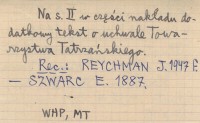 Na s. II w części nakładu do-
datkowy tekst o uchwale Towa-
rzystwa Tatrzańskiego.
Rec.: REYCHMAN J. 1947 E
— SZWARC E. 1887.
WHP, MT